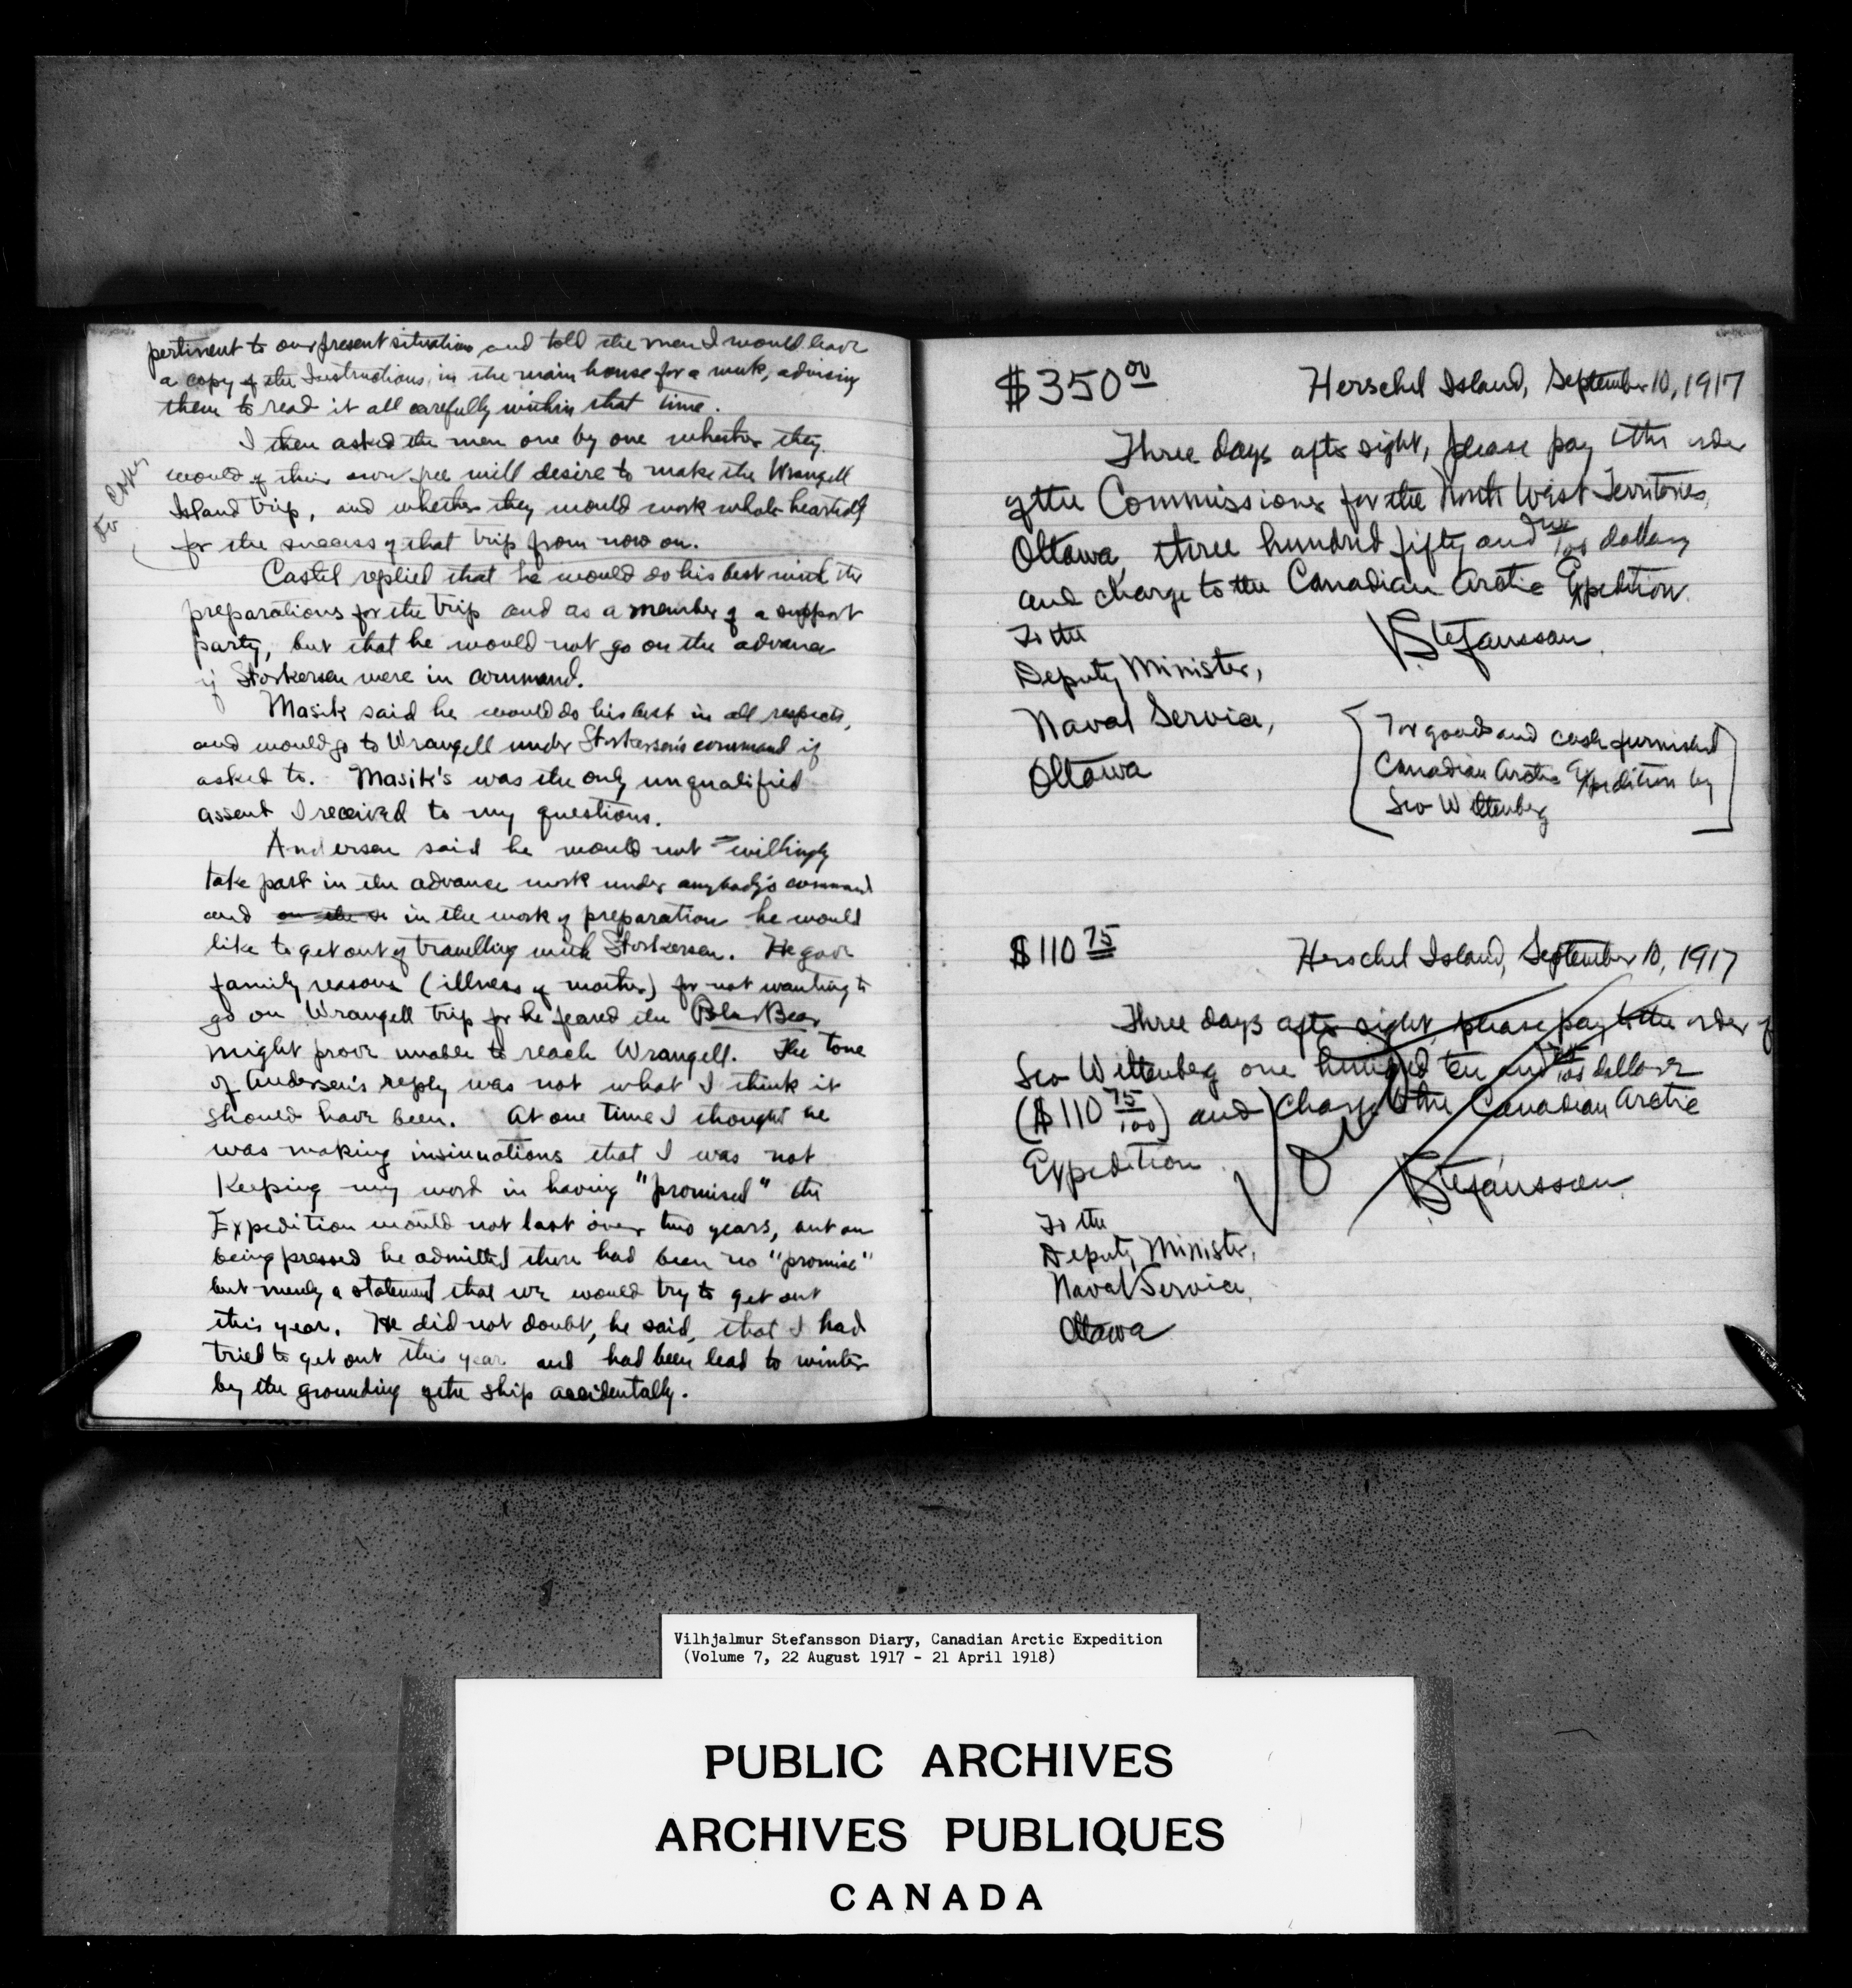 pertinent to our present situation and told the men I would leave
a copy of the Instructions, in the main house for a week, advising
them to read it all carefully within that time.
I then asked the men one by one whether they
would of their own free will desire to make the Wrangell
Island trip, and whether they would work whole heartedly
for the success of that trip from now on.
to Copy
Castel replied that he would do his best with the
preparations for the trip and as a member of a support
party, but that he would not go on the advance
if Storkersen were in command.
Masik said he would do his best in all respects,
and would go to Wrangell under Storkersen's command if
asked to. Masik's was the only unqualified
assent I received to my questions.
Andersen said he would not willingly
take part in the advance work under anybody's command
and on the s in the work of preparation he would
like to get out of travelling with Storkersen. He gave
family reasons (illness of mother) for not wanting to
go on Wrangell trip for he feared the Polar Bear
might prove unable to reach Wrangell. The tone
of Andersen's reply was not what I think it
should have been. At one time I thought he
was making insinuations that I was not
keeping my word in having "promised" the
Expedition would not last over two years, but on
being pressed he admitted there had been no "promise"
but merely a statement that we would try to get out
this year. He did not doubt, he said, that I had
tried to get out this year and had been lead to winter
by the grounding of the ship accidentally.
$350 00 Herschel Island, September 10, 1917
Three days after sight, please pay to the order
of the Commissioner for the North West Territories,
Ottawa, three hundred fifty and no/100 dollars
and charge to the Canadian Arctic Expedition.
V Stefansson
To the
Deputy Minister,
Naval Service,
Ottawa
For goods and cash furnished
Canadian Arctic Expedition by
Leo Wittenberg
$110 75 Herschel Island, September 10, 1917
Three days after sight, please pay to the order of
Leo Wittenberg one hundred ten and 75/100 dollars
($110 75/100) and charge to the Canadian Arctic
Expedition
V Stefansson
To the
Deputy Minister,
Naval Service,
Ottawa
Vilhjalmur Stefansson Diary, Canadian Arctic Expedition
(Volume 7, 22 August 1917 - 21 April 1918)
PUBLIC ARCHIVES
ARCHIVES PUBLIQUES
CANADA